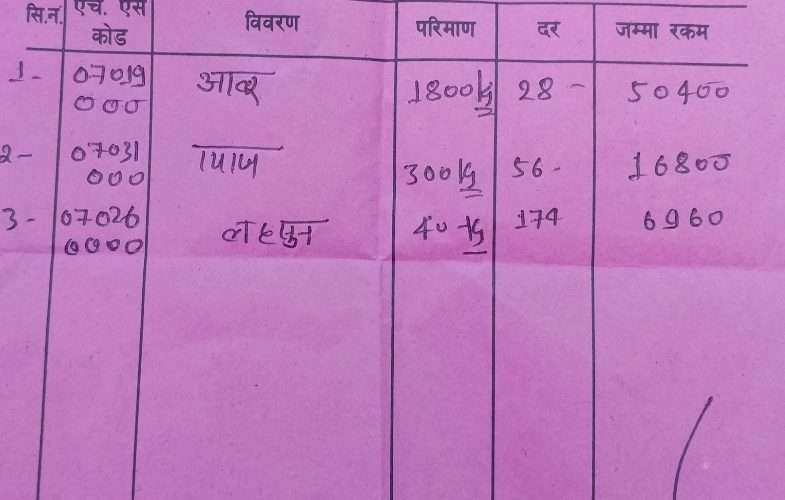 सि.नं. एच. एस कोड विवरण परिमाण दर जम्मा रकम
1- 07019 000 आलु 1800 kg 28 - 50400
2- 07031 000 प्याज 300 kg 56- 16800
3- 07026 0000 लहसुन 40 kg 174 6960